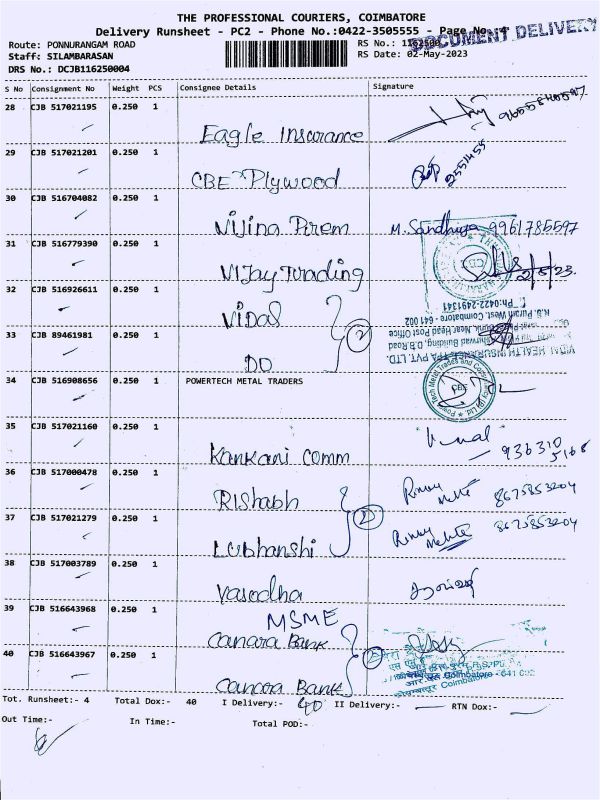 THE PROFESSIONAL COURIERS, COIMBATORE
Delivery Runsheet - PC2 - Phone No.:0422-3505555 - Page No. 4
DOCUMENT DELIVERY
Route: PONNURANGAM ROAD
RS No.:
Staff: SILAMBARASAN
RS Date: 02-May-2023
DRS No.: DCJB116250004
S No Consignment No Weight PCS Consignee Details Signature
28 CJB 517021195 0.250 1 Eagle Insurance
29 CJB 517021201 0.250 1 CBE Plywood 2551455
30 CJB 516704082 0.250 1 Vijina Prem M. Sandhya 9961785597
31 CJB 516779390 0.250 1 Vijay Trading 2/5/23
32 CJB 516926611 0.250 1 Vidal
Ph:0422-2491341
R.S. Puram West, Coimbatore - 641 002
33 CJB 89461981 0.250 1 DO 2
VIDAL HEALTH INSURANCE TPA PVT. LTD.
34 CJB 516908656 0.250 1 POWERTECH METAL TRADERS
35 CJB 517021160 0.250 1 Kankani Comm
36 CJB 517000478 0.250 1 Rishabh 8675853204
37 CJB 517021279 0.250 1 Lubhanshi 2 8675853204
38 CJB 517003789 0.250 1 Vasodha
39 CJB 516643968 0.250 1 MSME
Canara Bank
40 CJB 516643967 0.250 1 Canara Bank 2
Coimbatore - 641 002
Tot. Runsheet:- 4 Total Dox:- 40 I Delivery:- 40 II Delivery:- RTN Dox:-
Out Time:- In Time:- Total POD:-